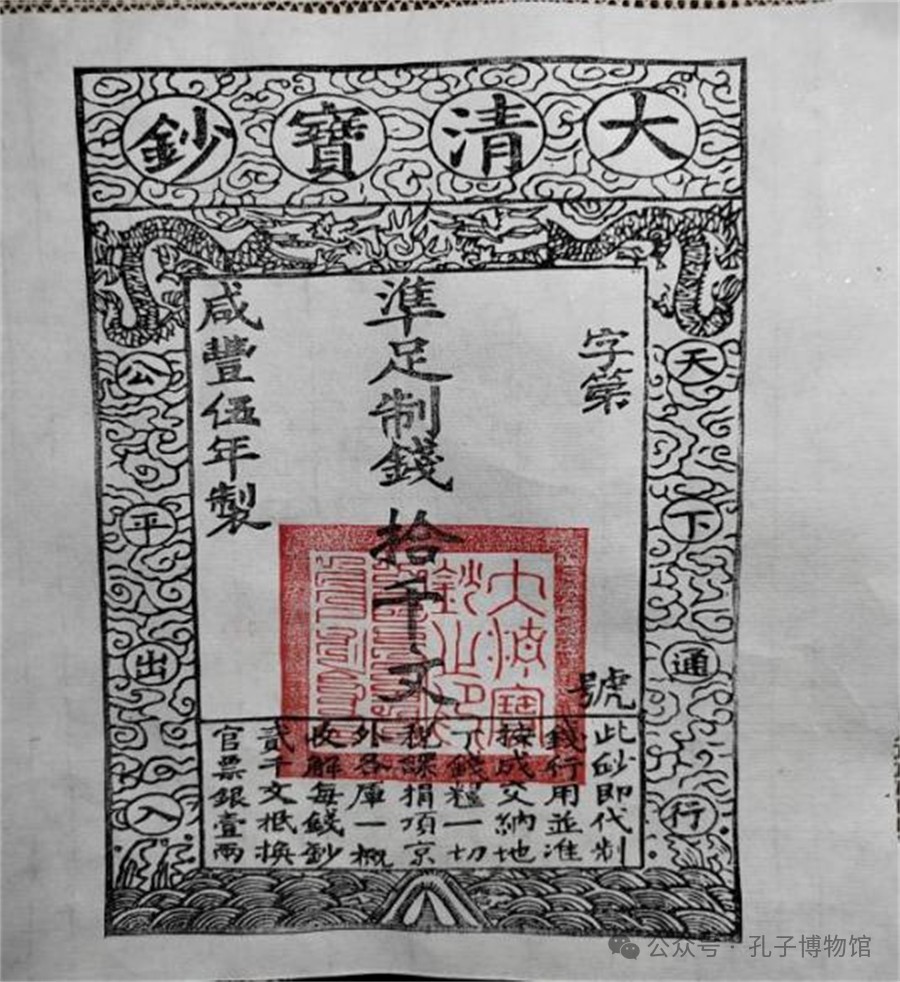 大清寶鈔
天下通行
公平出入
字第
號
準足制錢拾千文
咸豐伍年製
大清寶
鈔之印
此鈔即代制
錢行用並准
按成交納地
丁錢糧一切
稅課捐項京
外各庫一概
收解每錢鈔
貳千文抵換
官票銀壹兩
公众号·孔子博物馆